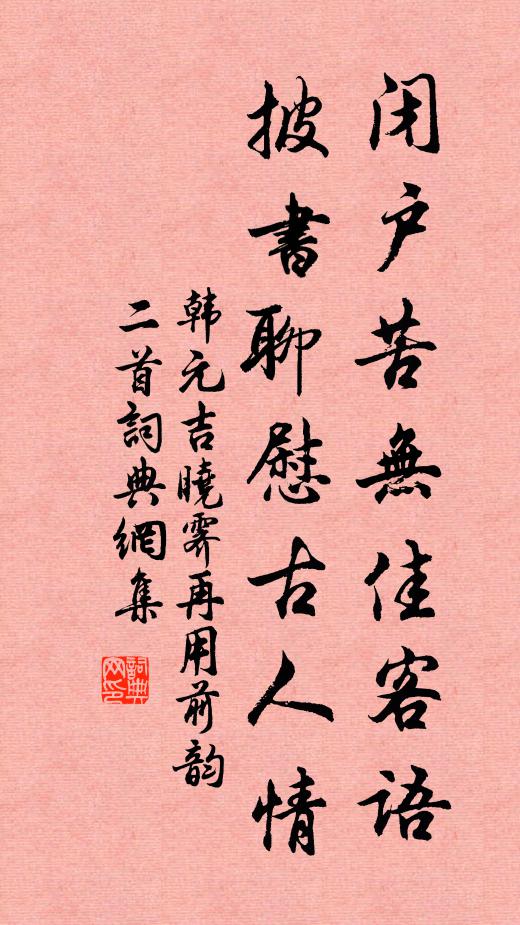 闭户苦無佳客語
披書聊慰古人情
韩元吉曉霽再用前韵
二首詞典網集
詞典网印